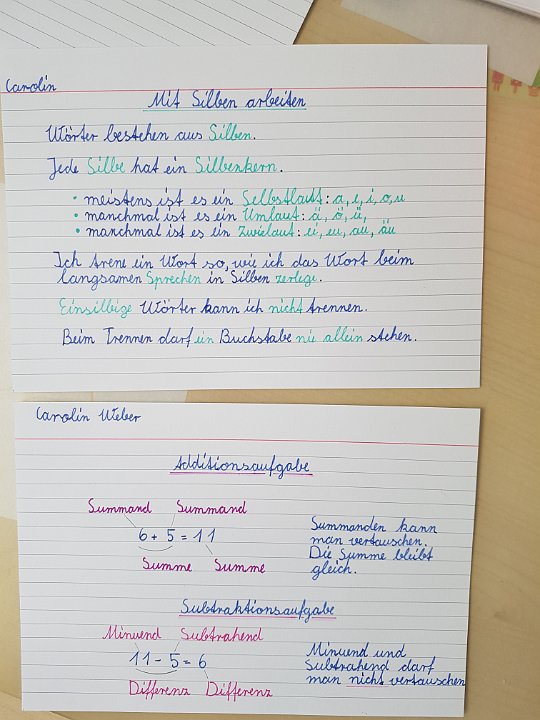 Carolin
Mit Silben arbeiten
Wörter bestehen aus Silben.
Jede Silbe hat ein Silbenkern.
• meistens ist es ein Selbstlaut: a, e, i, o, u
• manchmal ist es ein Umlaut: ä, ö, ü,
• manchmal ist es ein Zwielaut: ei, eu, au, äu
Ich trene ein Wort so, wie ich das Wort beim
langsamen Sprechen in Silben zerlege.
Einsilbige Wörter kann ich nicht trennen.
Beim Trennen darf ein Buchstabe nie allein stehen.
Carolin Weber
Additionsaufgabe
Summand Summand
6 + 5 = 11
Summe Summe
Summanden kann
man vertauschen.
Die Summe bleibt
gleich.
Subtraktionsaufgabe
Minuend Subtrahend
11 - 5 = 6
Differenz Differenz
Minuend und
Subtrahend darf
man nicht vertauschen